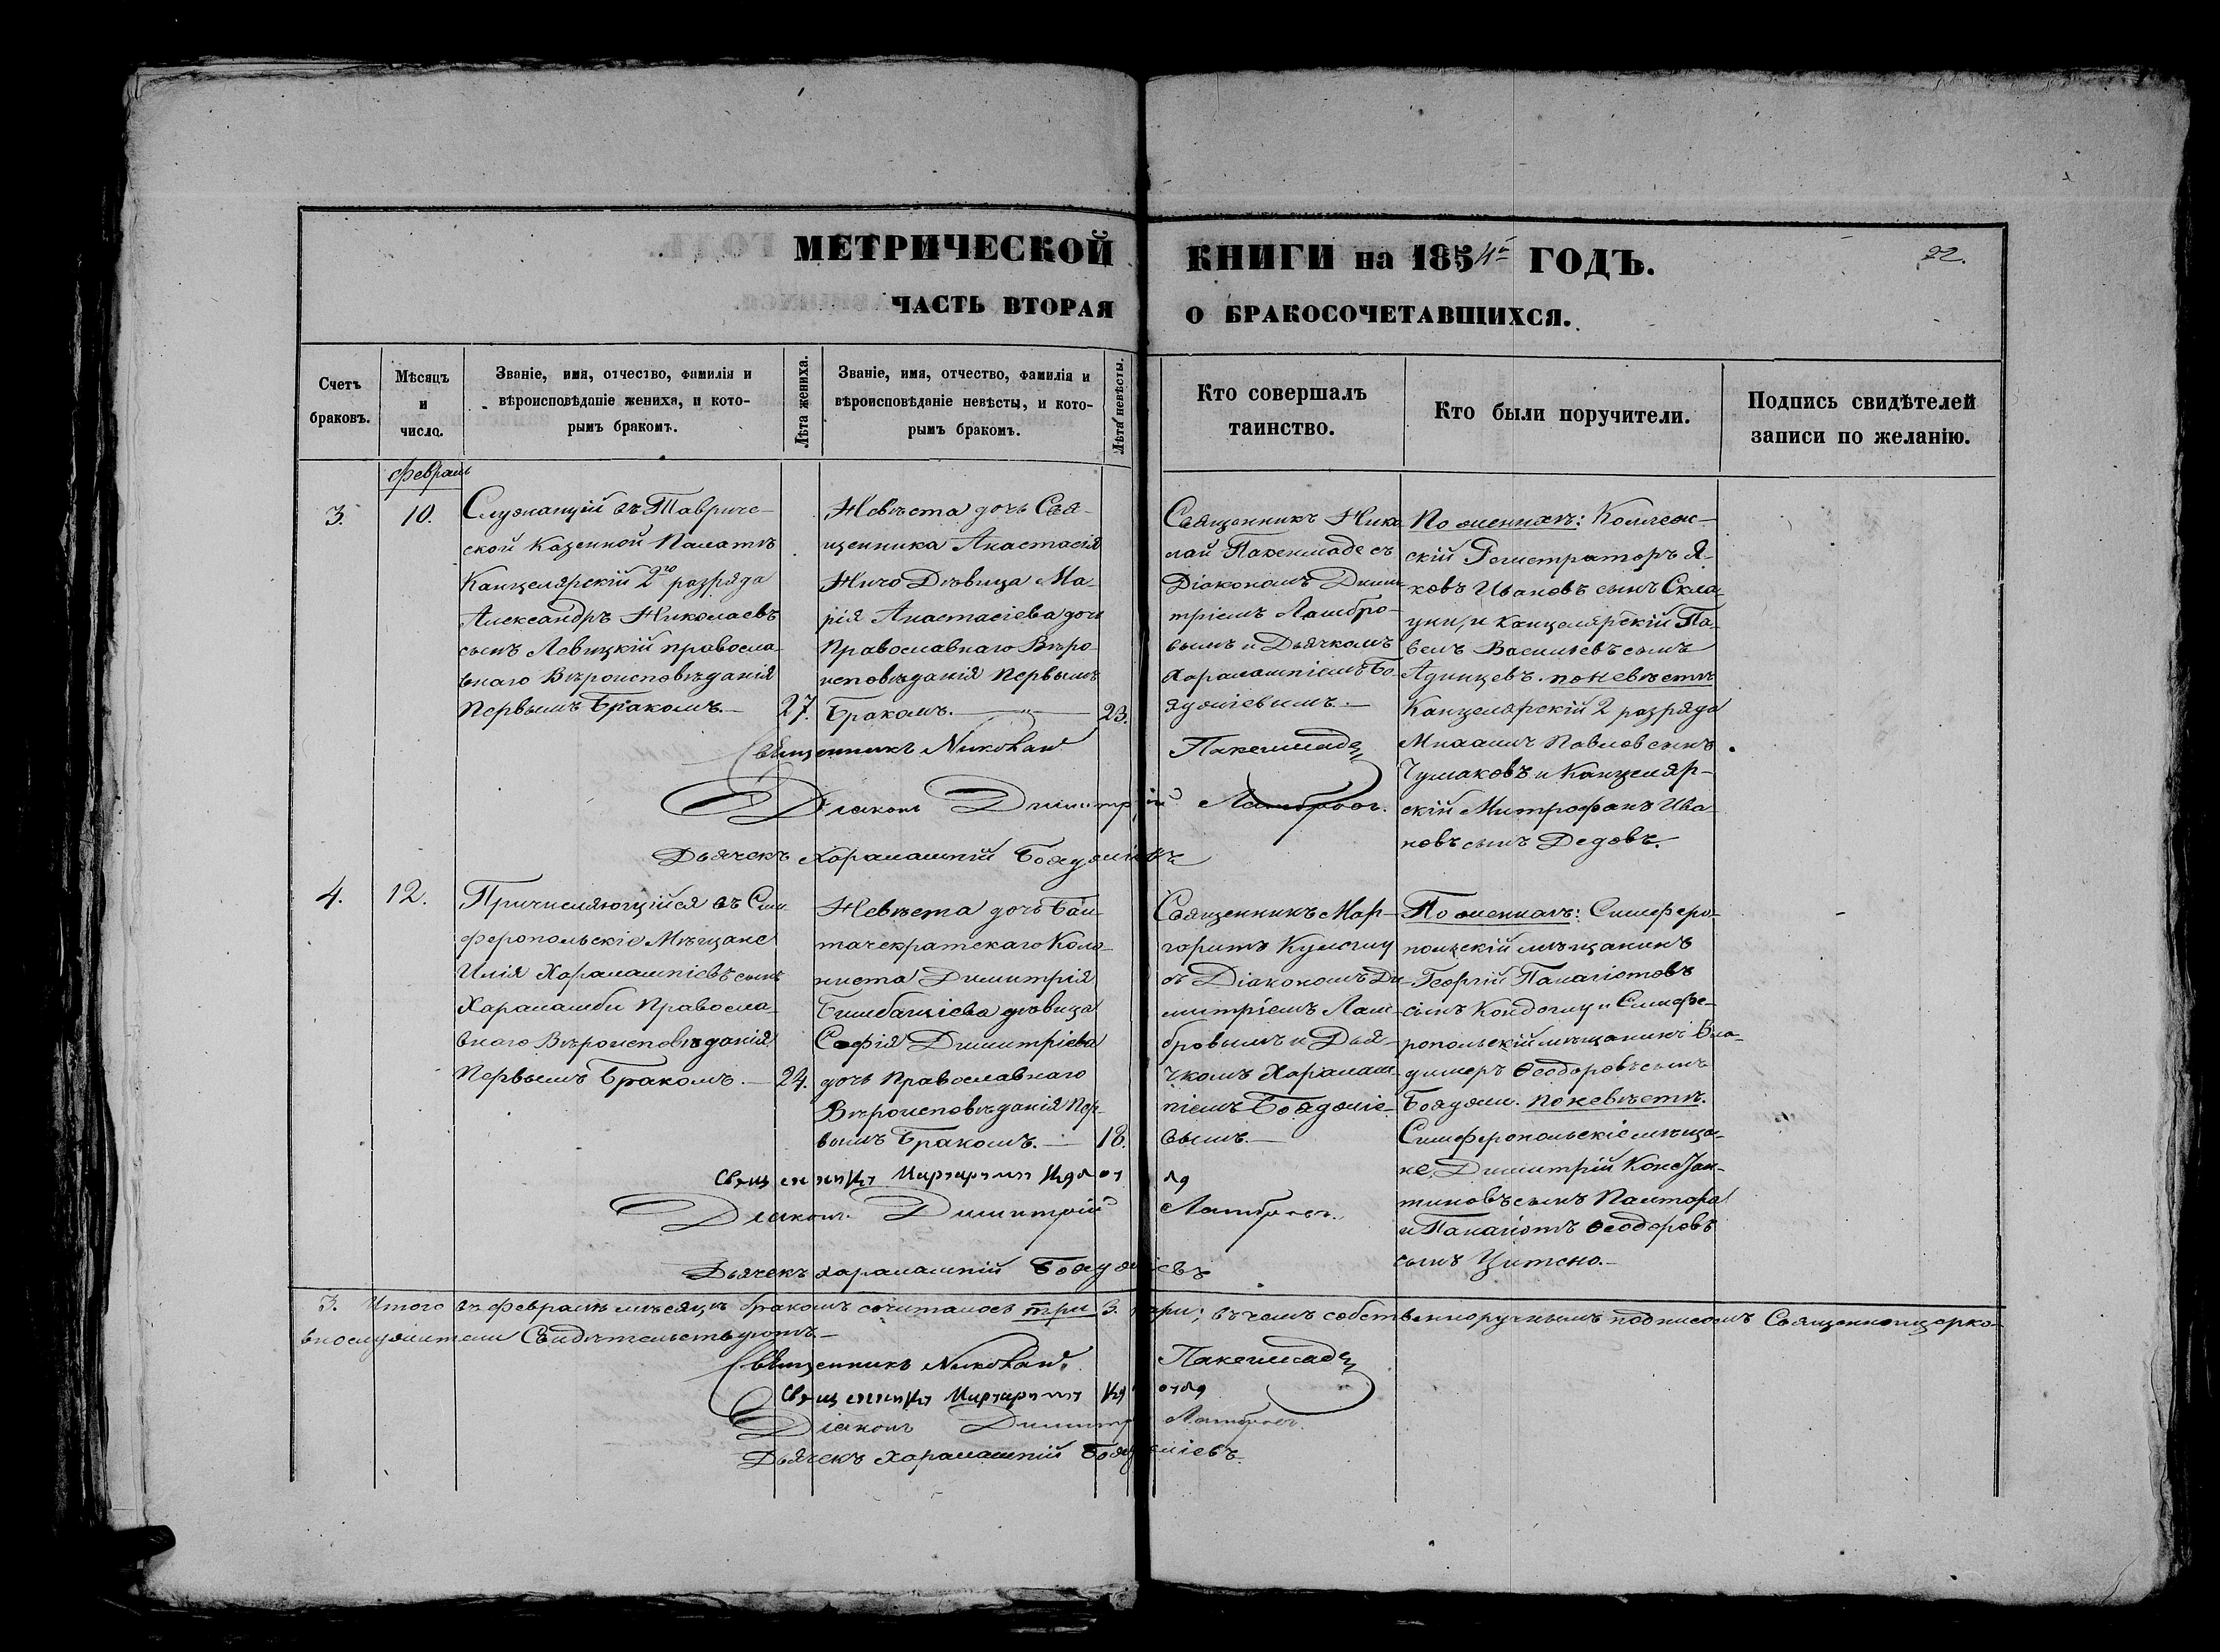 МЕТРИЧЕСКОЙ
ЧАСТЬ ВТОРАЯ
КНИГИ на 1854й ГОДЪ.
О БРАКОСОЧЕТАВШИХСЯ.
22.
Счетъ
браковъ.
Мѣсяцъ
и
число.
Званіе, имя, отчество, фамилія и
вѣроисповѣданіе жениха, и кото-
рымъ бракомъ.
Лѣта жениха.
Званіе, имя, отчество, фамилія и
вѣроисповѣданіе невѣсты, и кото-
рымъ бракомъ.
Лѣта невѣсты.
Кто совершалъ
таинство.
Кто были поручители.
Подпись свидѣтелей
записи по желанію.
Февраль
3.
10.
Служащій въ Тавриче-
ской Казенной Палатѣ
Канцелярскій 2го разряда
Александръ Николаевъ
сынъ Левицкій правосла-
внаго Вѣроисповѣданія
Первымъ Бракомъ.
27.
Невѣста дочь Свя-
щенника Анастасія
Ничо Дѣвица Ма-
рія Анастасіева дочь
Православнаго Вѣро-
исповѣданія Первымъ
Бракомъ.
23.
Священникъ Нико-
лай Пакенмаде съ
Діакономъ Дими-
тріемъ Ламбро-
вымъ и Дьячкомъ
Харалампіемъ Бо-
яджіевымъ.
По женихѣ: Коллеж-
скій Регистраторъ Я-
ковъ Ивановъ сынъ Скла-
уни, и Канцелярскій Па-
велъ Васильевъ сынъ
Адинцевъ. по невѣстѣ
Канцелярскій 2 разряда
Павловъ сынъ
Чумаковъ и Канцеляр-
скій Митрофанъ Ива-
новъ сынъ Дедовъ.
Священникъ Николай Пакенмаде
Діаконъ Димитрій Ламбровъ.
Дьячекъ Харалампій Бояджіевъ
4.
12.
Причисляющійся въ Сим-
феропольскіе Мѣщане
Илія Харалампіевъ сынъ
Харламби Правосла-
внаго Вѣроисповѣданія
Первымъ Бракомъ.
24.
Невѣста дочь
Коло-
ниста Димитрія
Бимбашіева дѣвица
Софія Димитріева
дочь Православнаго
Вѣроисповѣданія Пер-
вымъ Бракомъ.
18.
Священникъ Мар-
гаритъ
съ Діакономъ Ди-
митріемъ Лам-
бровымъ и Дья-
чкомъ Харалам-
піемъ Бояджіе-
вымъ.
По женихѣ: Симферо-
польскій мѣщанинъ
Георгій Панагіотовъ
сынъ Кондогли и Симфе-
ропольскій мѣщанинъ Вла-
димеръ Ѳеодоровъ сынъ
Бояджи. по невѣстѣ.
Симферопольскіе мѣща-
не, Димитрій Констан-
тиновъ сынъ
и Панагіотъ Ѳеодоровъ
сынъ
Священникъ Маргаритъ
Діаконъ Димитрій Ламбровъ.
Дьячекъ Харалампій Бояджіевъ
3. Итого въ Февралѣ мѣсяцѣ бракомъ сочеталось три 3. пары; въ чемъ собственноручнымъ подписомъ Священноцерко-
внослужители Свидѣтельствуютъ.
Священникъ Николай Пакенмаде
Священникъ Маргаритъ
Діаконъ Димитрій Ламбровъ.
Дьячекъ Харалампій Бояджіевъ.